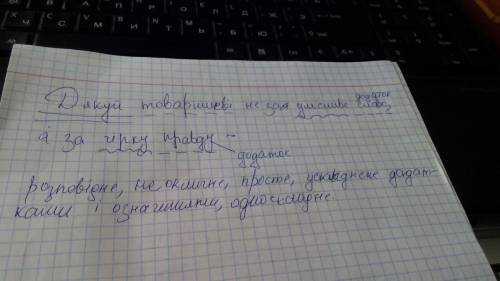 додаток
Дякуй товаришеві не за улесливе слово,
а за гірку правду -
додаток
розповідне, не оклична, просте, ускладнене додат-
ками і означеннями, односкладне.